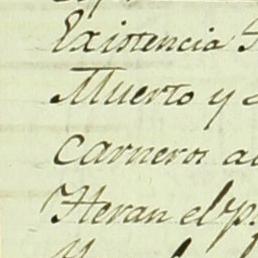 Existencia
Muerto y
Carneros a
Heran el p